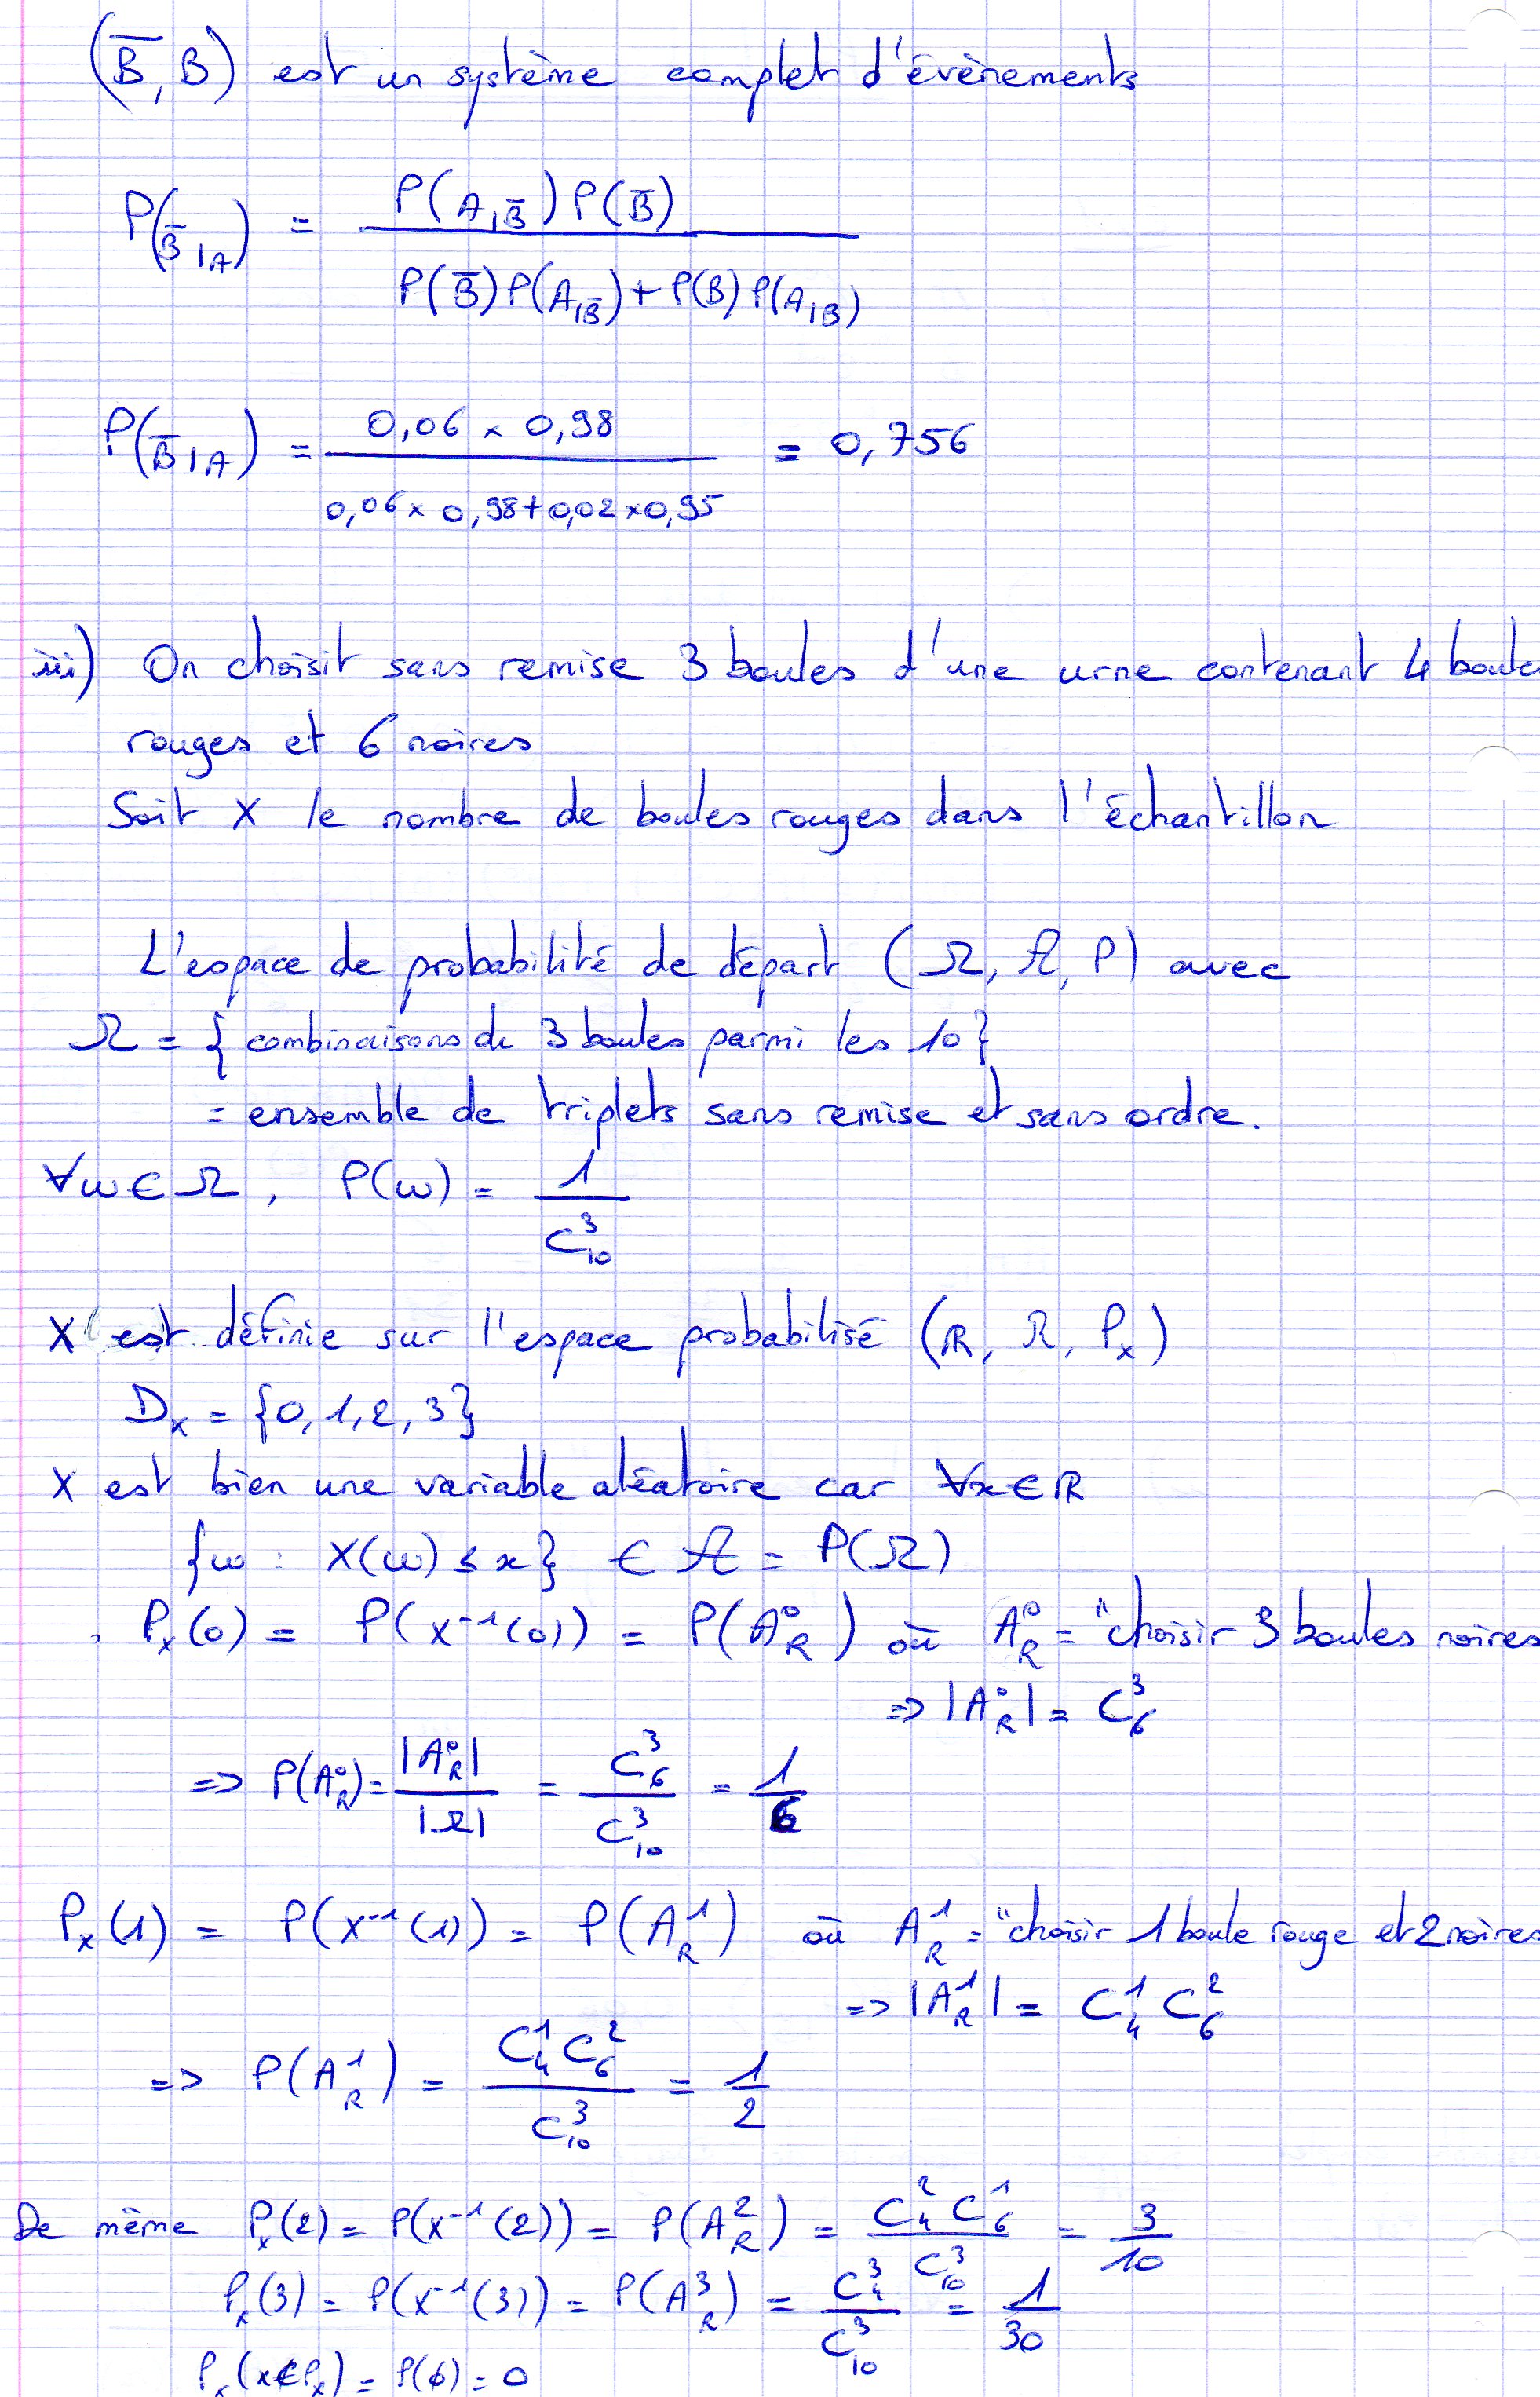 (B̅, B) est un système complet d'évènements
P(B̅|A) = P(A|B̅) P(B̅) / P(B̅) P(A|B̅) + P(B) P(A|B)
P(B̅|A) = 0,06 × 0,98 / 0,06 × 0,98 + 0,02 × 0,95 = 0,756
iii) On choisit sans remise 3 boules d'une urne contenant 4 boules
rouges et 6 noires
Soit X le nombre de boules rouges dans l'échantillon
L'espace de probabilité de départ (Ω, A, P) avec
Ω = { combinaisons de 3 boules parmi les 10 }
= ensemble de triplets sans remise et sans ordre.
∀ω ∈ Ω, P(ω) = 1 / C₁₀³
X est définie sur l'espace probabilisé (ℝ, R, Pₓ)
Dₓ = {0, 1, 2, 3}
X est bien une variable aléatoire car ∀x ∈ ℝ
{ω : X(ω) ≤ x} ∈ A = P(Ω)
Pₓ(0) = P(X⁻¹(0)) = P(A_R⁰) où A_R⁰ = "choisir 3 boules noires
=> |A_R⁰| = C₆³
=> P(A_R⁰) = |A_R⁰| / |Ω| = C₆³ / C₁₀³ = 1/6
Pₓ(1) = P(X⁻¹(1)) = P(A_R¹) où A_R¹ = "choisir 1 boule rouge et 2 noires
=> |A_R¹| = C₄¹ C₆²
=> P(A_R¹) = C₄¹ C₆² / C₁₀³ = 1/2
De même Pₓ(2) = P(X⁻¹(2)) = P(A_R²) = C₄² C₆¹ / C₁₀³ = 3/10
Pₓ(3) = P(X⁻¹(3)) = P(A_R³) = C₄³ / C₁₀³ = 1/30
Pₓ(x ∉ Dₓ) = P(ϕ) = 0